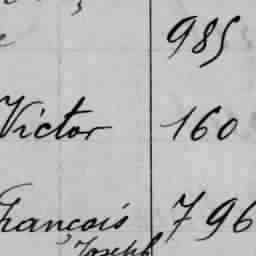 985
Victor 160
François 796
Joseph